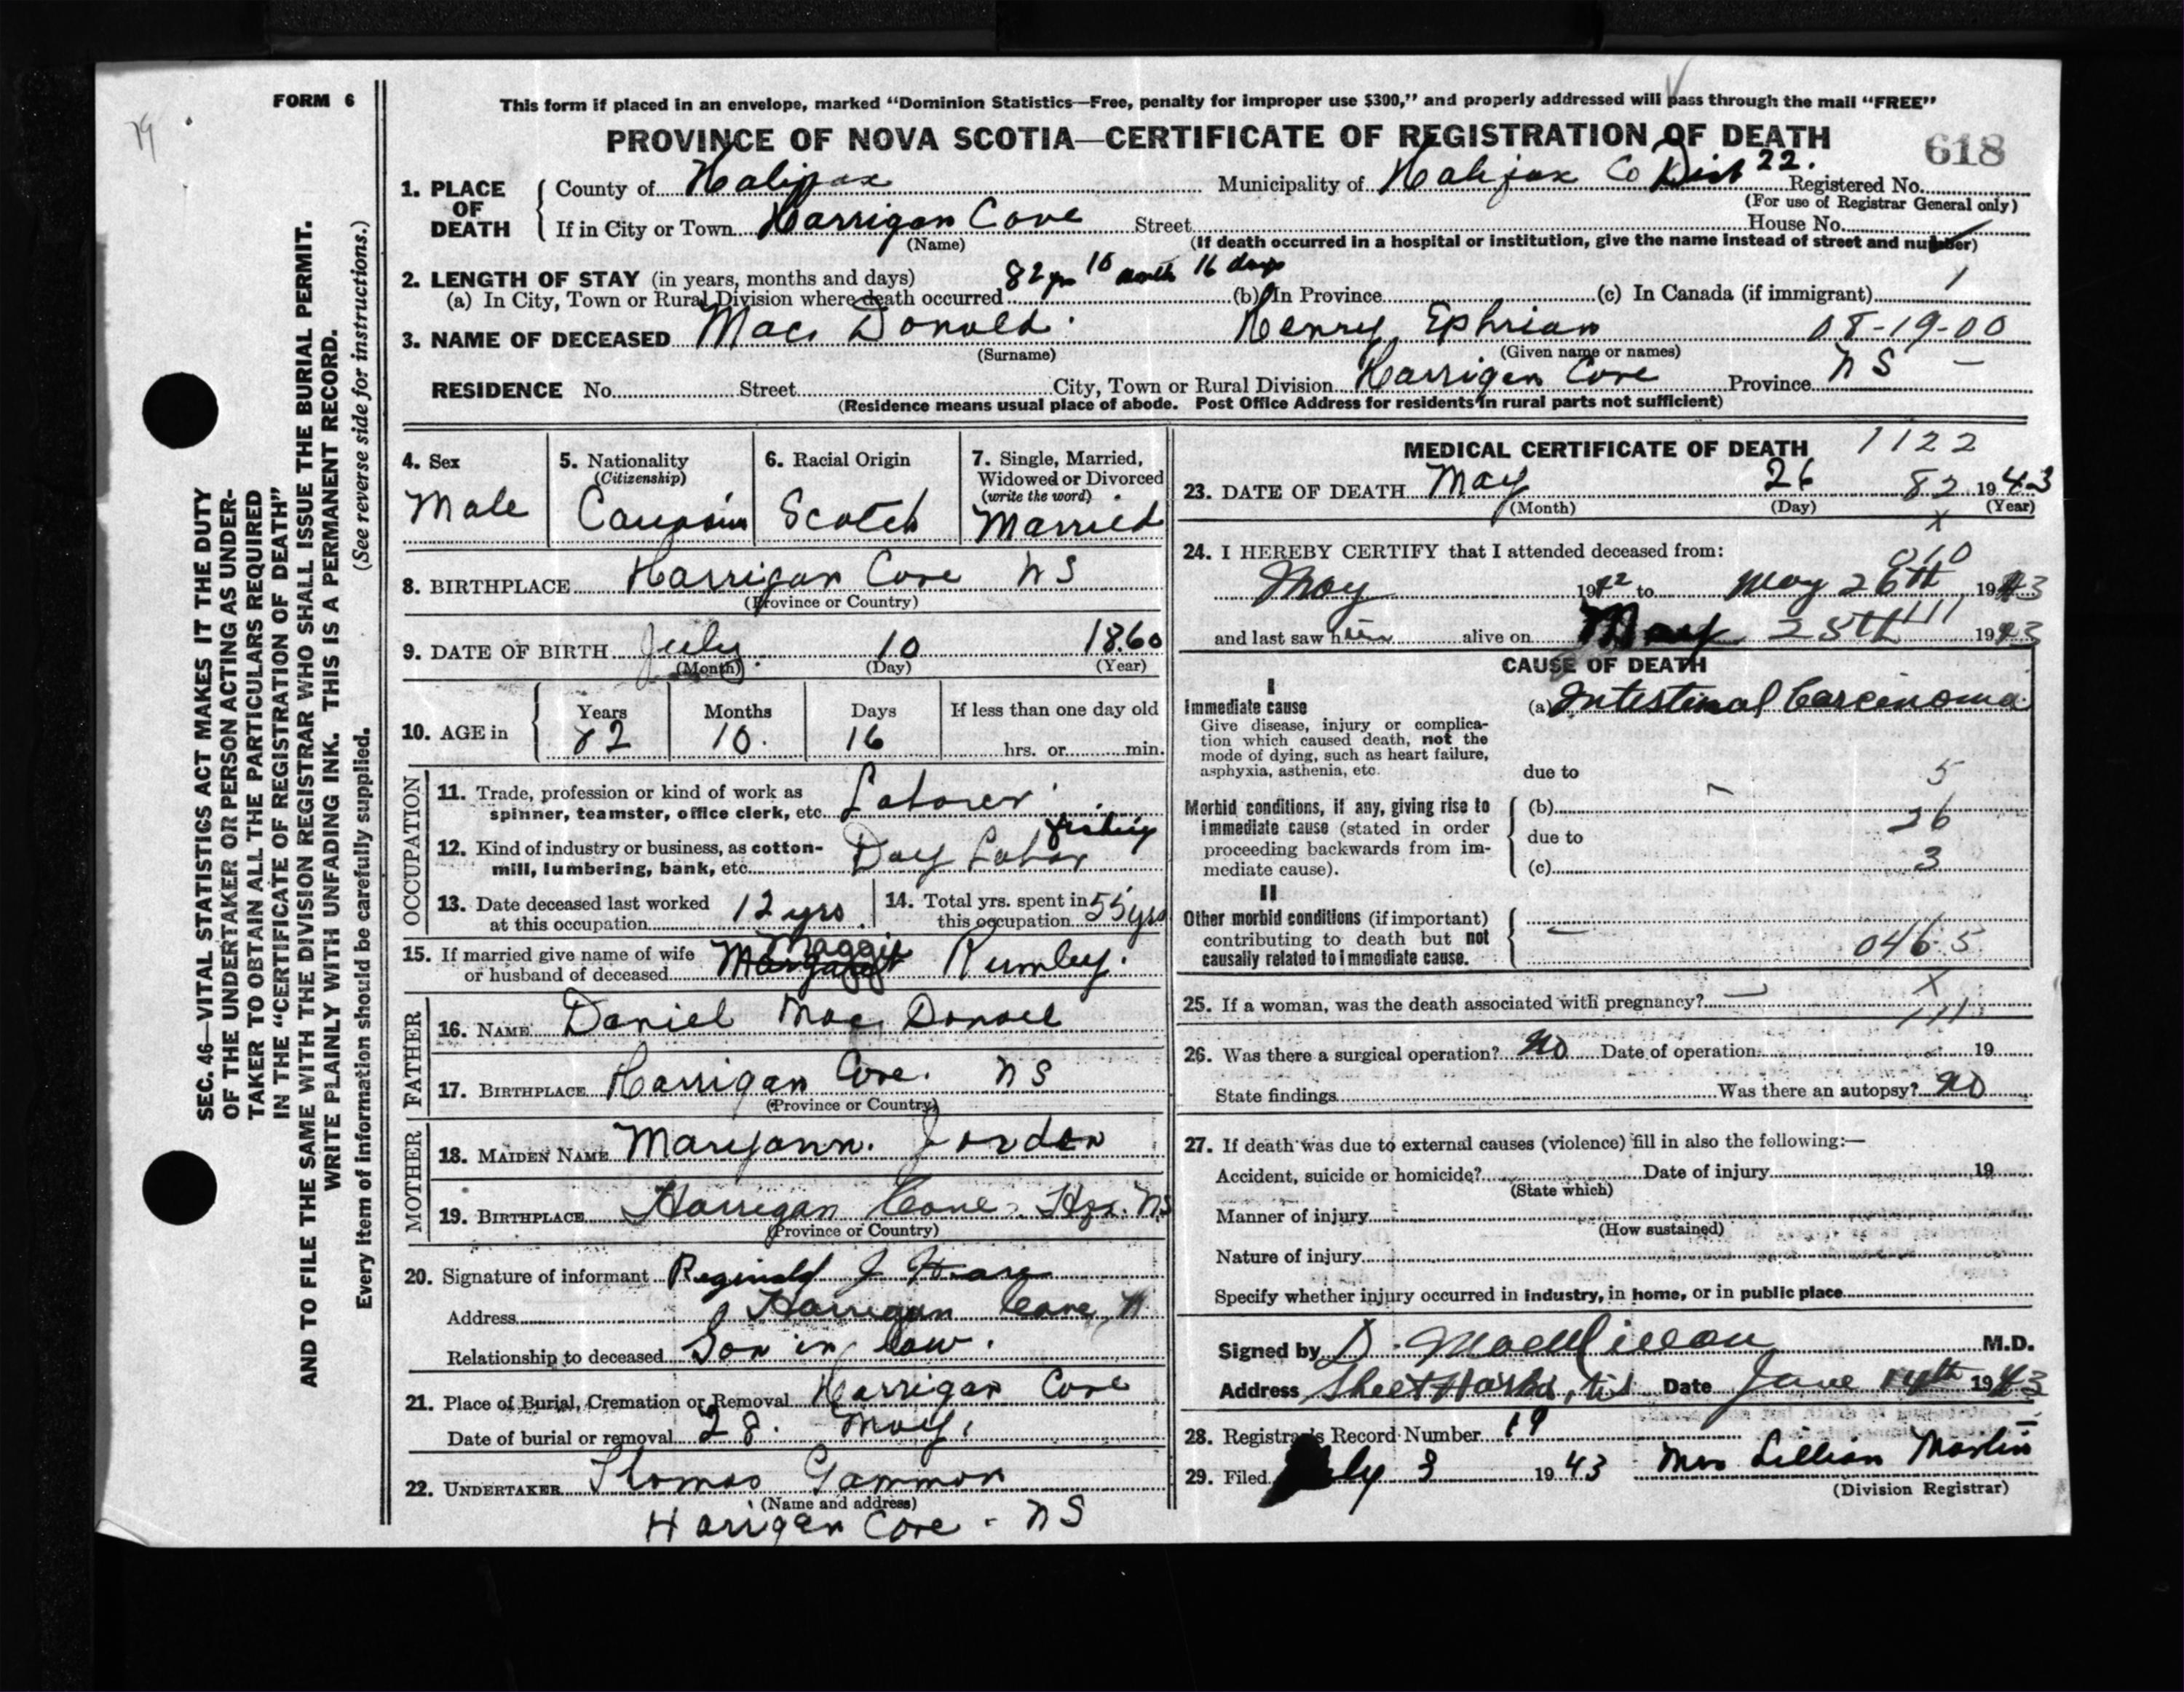 FORM 6
This form if placed in an envelope, marked "Dominion Statistics—Free, penalty for improper use $300," and properly addressed will pass through the mail "FREE"
PROVINCE OF NOVA SCOTIA—CERTIFICATE OF REGISTRATION OF DEATH
618
1. PLACE OF DEATH
County of Halifax Municipality of Halifax Co Dist 22. Registered No.
(For use of Registrar General only)
If in City or Town Harrigan Cove Street House No.
(Name) (If death occurred in a hospital or institution, give the name instead of street and number)
2. LENGTH OF STAY (in years, months and days) 82 yrs 10 months 16 days
(a) In City, Town or Rural Division where death occurred (b) In Province (c) In Canada (if immigrant) 1
3. NAME OF DECEASED Mac Donald Henry Ephrian 08-19-00
(Surname) (Given name or names)
RESIDENCE No. Street City, Town or Rural Division Harrigan Cove Province NS
(Residence means usual place of abode. Post Office Address for residents in rural parts not sufficient)
4. Sex
Male
5. Nationality
(Citizenship)
6. Racial Origin
Scotch
7. Single, Married,
Widowed or Divorced
(write the word)
Married
8. BIRTHPLACE Harrigan Cove NS
(Province or Country)
9. DATE OF BIRTH July 10 1860
(Month) (Day) (Year)
10. AGE in
Years Months Days If less than one day old
82 10 16 hrs. or min.
OCCUPATION
11. Trade, profession or kind of work as
spinner, teamster, office clerk, etc. Laborer
fishing
12. Kind of industry or business, as cotton-
mill, lumbering, bank, etc. Day Labor
13. Date deceased last worked
at this occupation 12 yrs
14. Total yrs. spent in
this occupation 55 yrs
15. If married give name of wife
or husband of deceased Margaret Maggie Rumley.
FATHER
16. NAME Daniel Mac Donald
17. BIRTHPLACE Harrigan Cove. NS
(Province or Country)
MOTHER
18. MAIDEN NAME Maryann. Jorden
19. BIRTHPLACE Harrigan Cove Hfx. NS
(Province or Country)
20. Signature of informant Reginald J
Address Harrigan Cove N
Relationship to deceased Son in law.
21. Place of Burial, Cremation or Removal Harrigan Cove
Date of burial or removal 28. May.
22. UNDERTAKER Thomas Gammon
(Name and address)
Harrigan Cove - NS
MEDICAL CERTIFICATE OF DEATH 1122
23. DATE OF DEATH May 26 82 1943
(Month) (Day) (Year)
X
24. I HEREBY CERTIFY that I attended deceased from: 010
May 1942 to May 26th 1943
and last saw him alive on May 25th 111 1943
CAUSE OF DEATH
I
Immediate cause
Give disease, injury or complica-
tion which caused death, not the
mode of dying, such as heart failure,
asphyxia, asthenia, etc.
(a) Intestinal Carcinoma
due to 5
Morbid conditions, if any, giving rise to
immediate cause (stated in order
proceeding backwards from im-
mediate cause).
(b)
due to 26
(c) 3
II
Other morbid conditions (if important)
contributing to death but not
causally related to immediate cause.
046.5
X
25. If a woman, was the death associated with pregnancy?
111
26. Was there a surgical operation? No Date of operation 19
State findings Was there an autopsy? No
27. If death was due to external causes (violence) fill in also the following:—
Accident, suicide or homicide? Date of injury 19
(State which)
Manner of injury
(How sustained)
Nature of injury
Specify whether injury occurred in industry, in home, or in public place
Signed by D. MacMillan M.D.
Address Sheet Harbor, N.S. Date June 14th 1943
28. Registrar's Record Number 19
29. Filed July 3 1943 Mrs Lillian Marlin
(Division Registrar)
SEC. 46—VITAL STATISTICS ACT MAKES IT THE DUTY
OF THE UNDERTAKER OR PERSON ACTING AS UNDER-
TAKER TO OBTAIN ALL THE PARTICULARS REQUIRED
IN THE "CERTIFICATE OF REGISTRATION OF DEATH"
AND TO FILE THE SAME WITH THE DIVISION REGISTRAR WHO SHALL ISSUE THE BURIAL PERMIT.
WRITE PLAINLY WITH UNFADING INK. THIS IS A PERMANENT RECORD.
Every item of information should be carefully supplied. (See reverse side for instructions.)